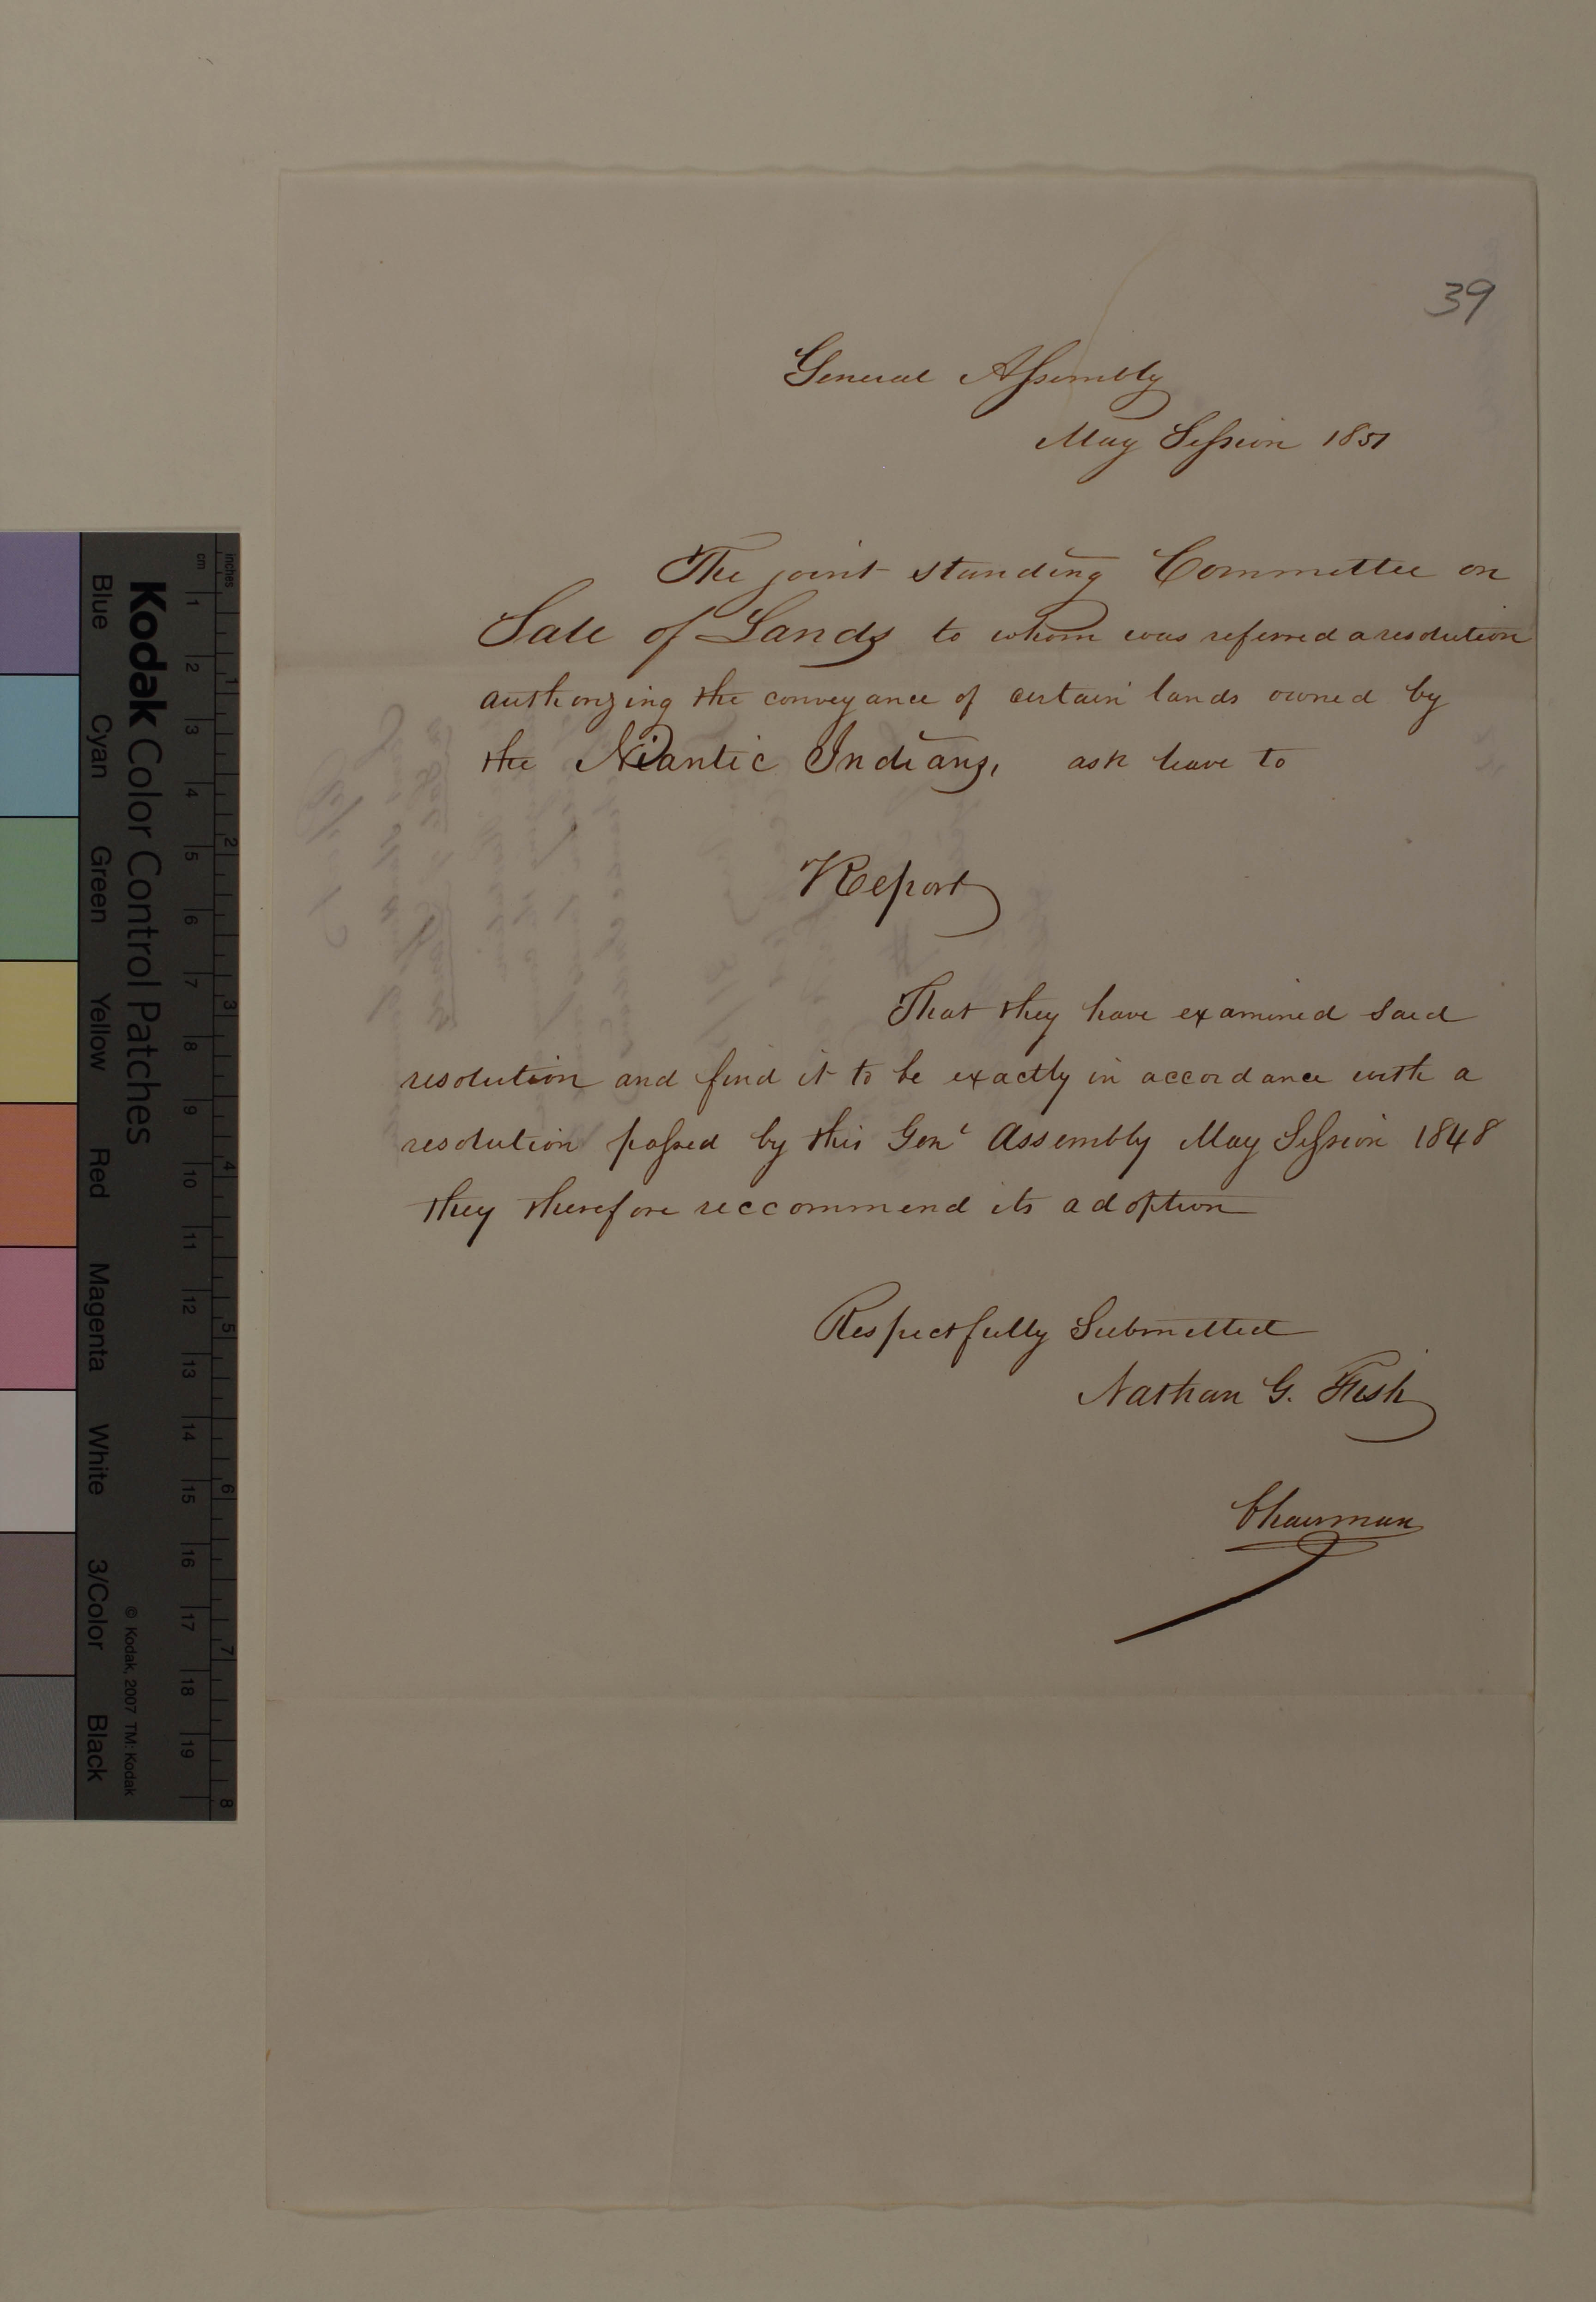 39
General Assembly
May Session 1851
The joint standing Committee on
Sale of Lands to whom was referred a resolution
authorizing the conveyance of certain lands owned by
the Niantic Indians, ask leave to
Report
That they have examined said
resolution and find it to be exactly in accordance with a
resolution passed by this Genl Assembly May Session 1848
they therefore reccommend its adoption
Respectfully Submitted
Nathan G. Fish
Chairman
Kodak Color Control Patches
Blue Cyan Green Yellow Red Magenta White 3/Color Black
© Kodak, 2007 TM: Kodak
inches 1 2 3 4 5 6 7 8
cm 1 2 3 4 5 6 7 8 9 10 11 12 13 14 15 16 17 18 19